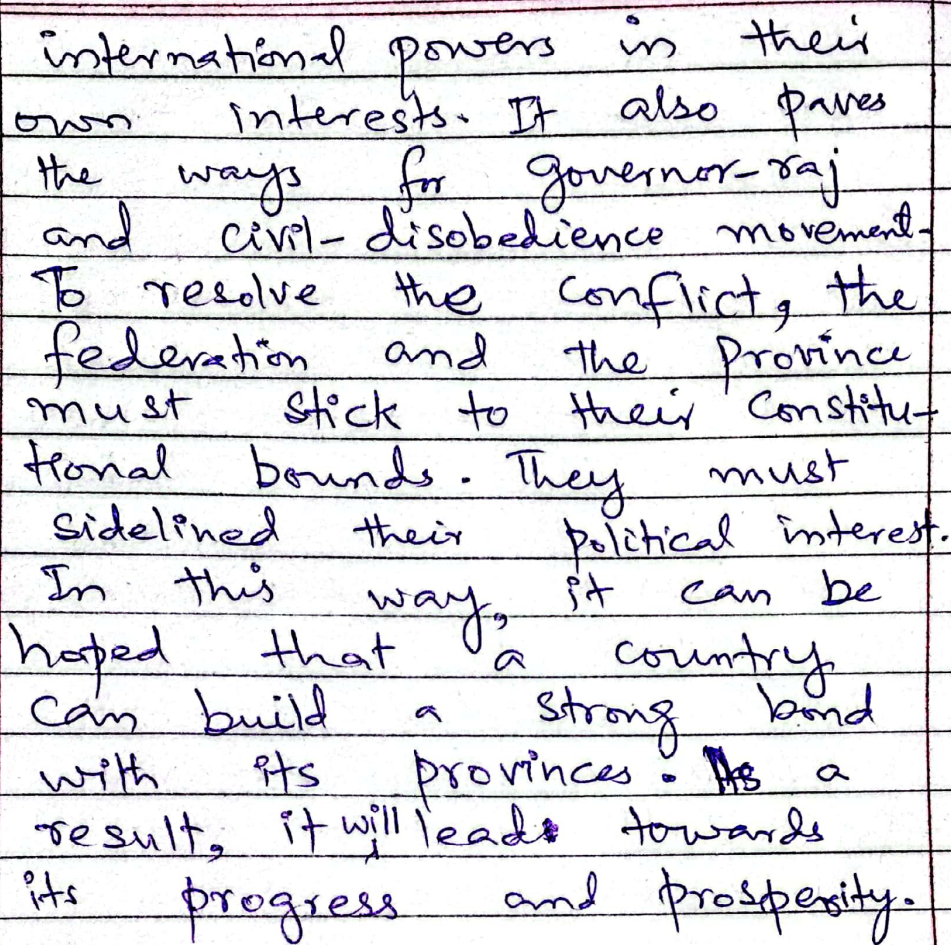 international powers in their
own interests. It also paves
the ways for governor-raj
and civil-disobedience movement.
To resolve the conflict, the
federation and the province
must stick to their constitu-
tional bounds. They must
sidelined their political interest.
In this way, it can be
hoped that a country
can build a strong bond
with its provinces. As a
result, it will lead towards
its progress and prosperity.